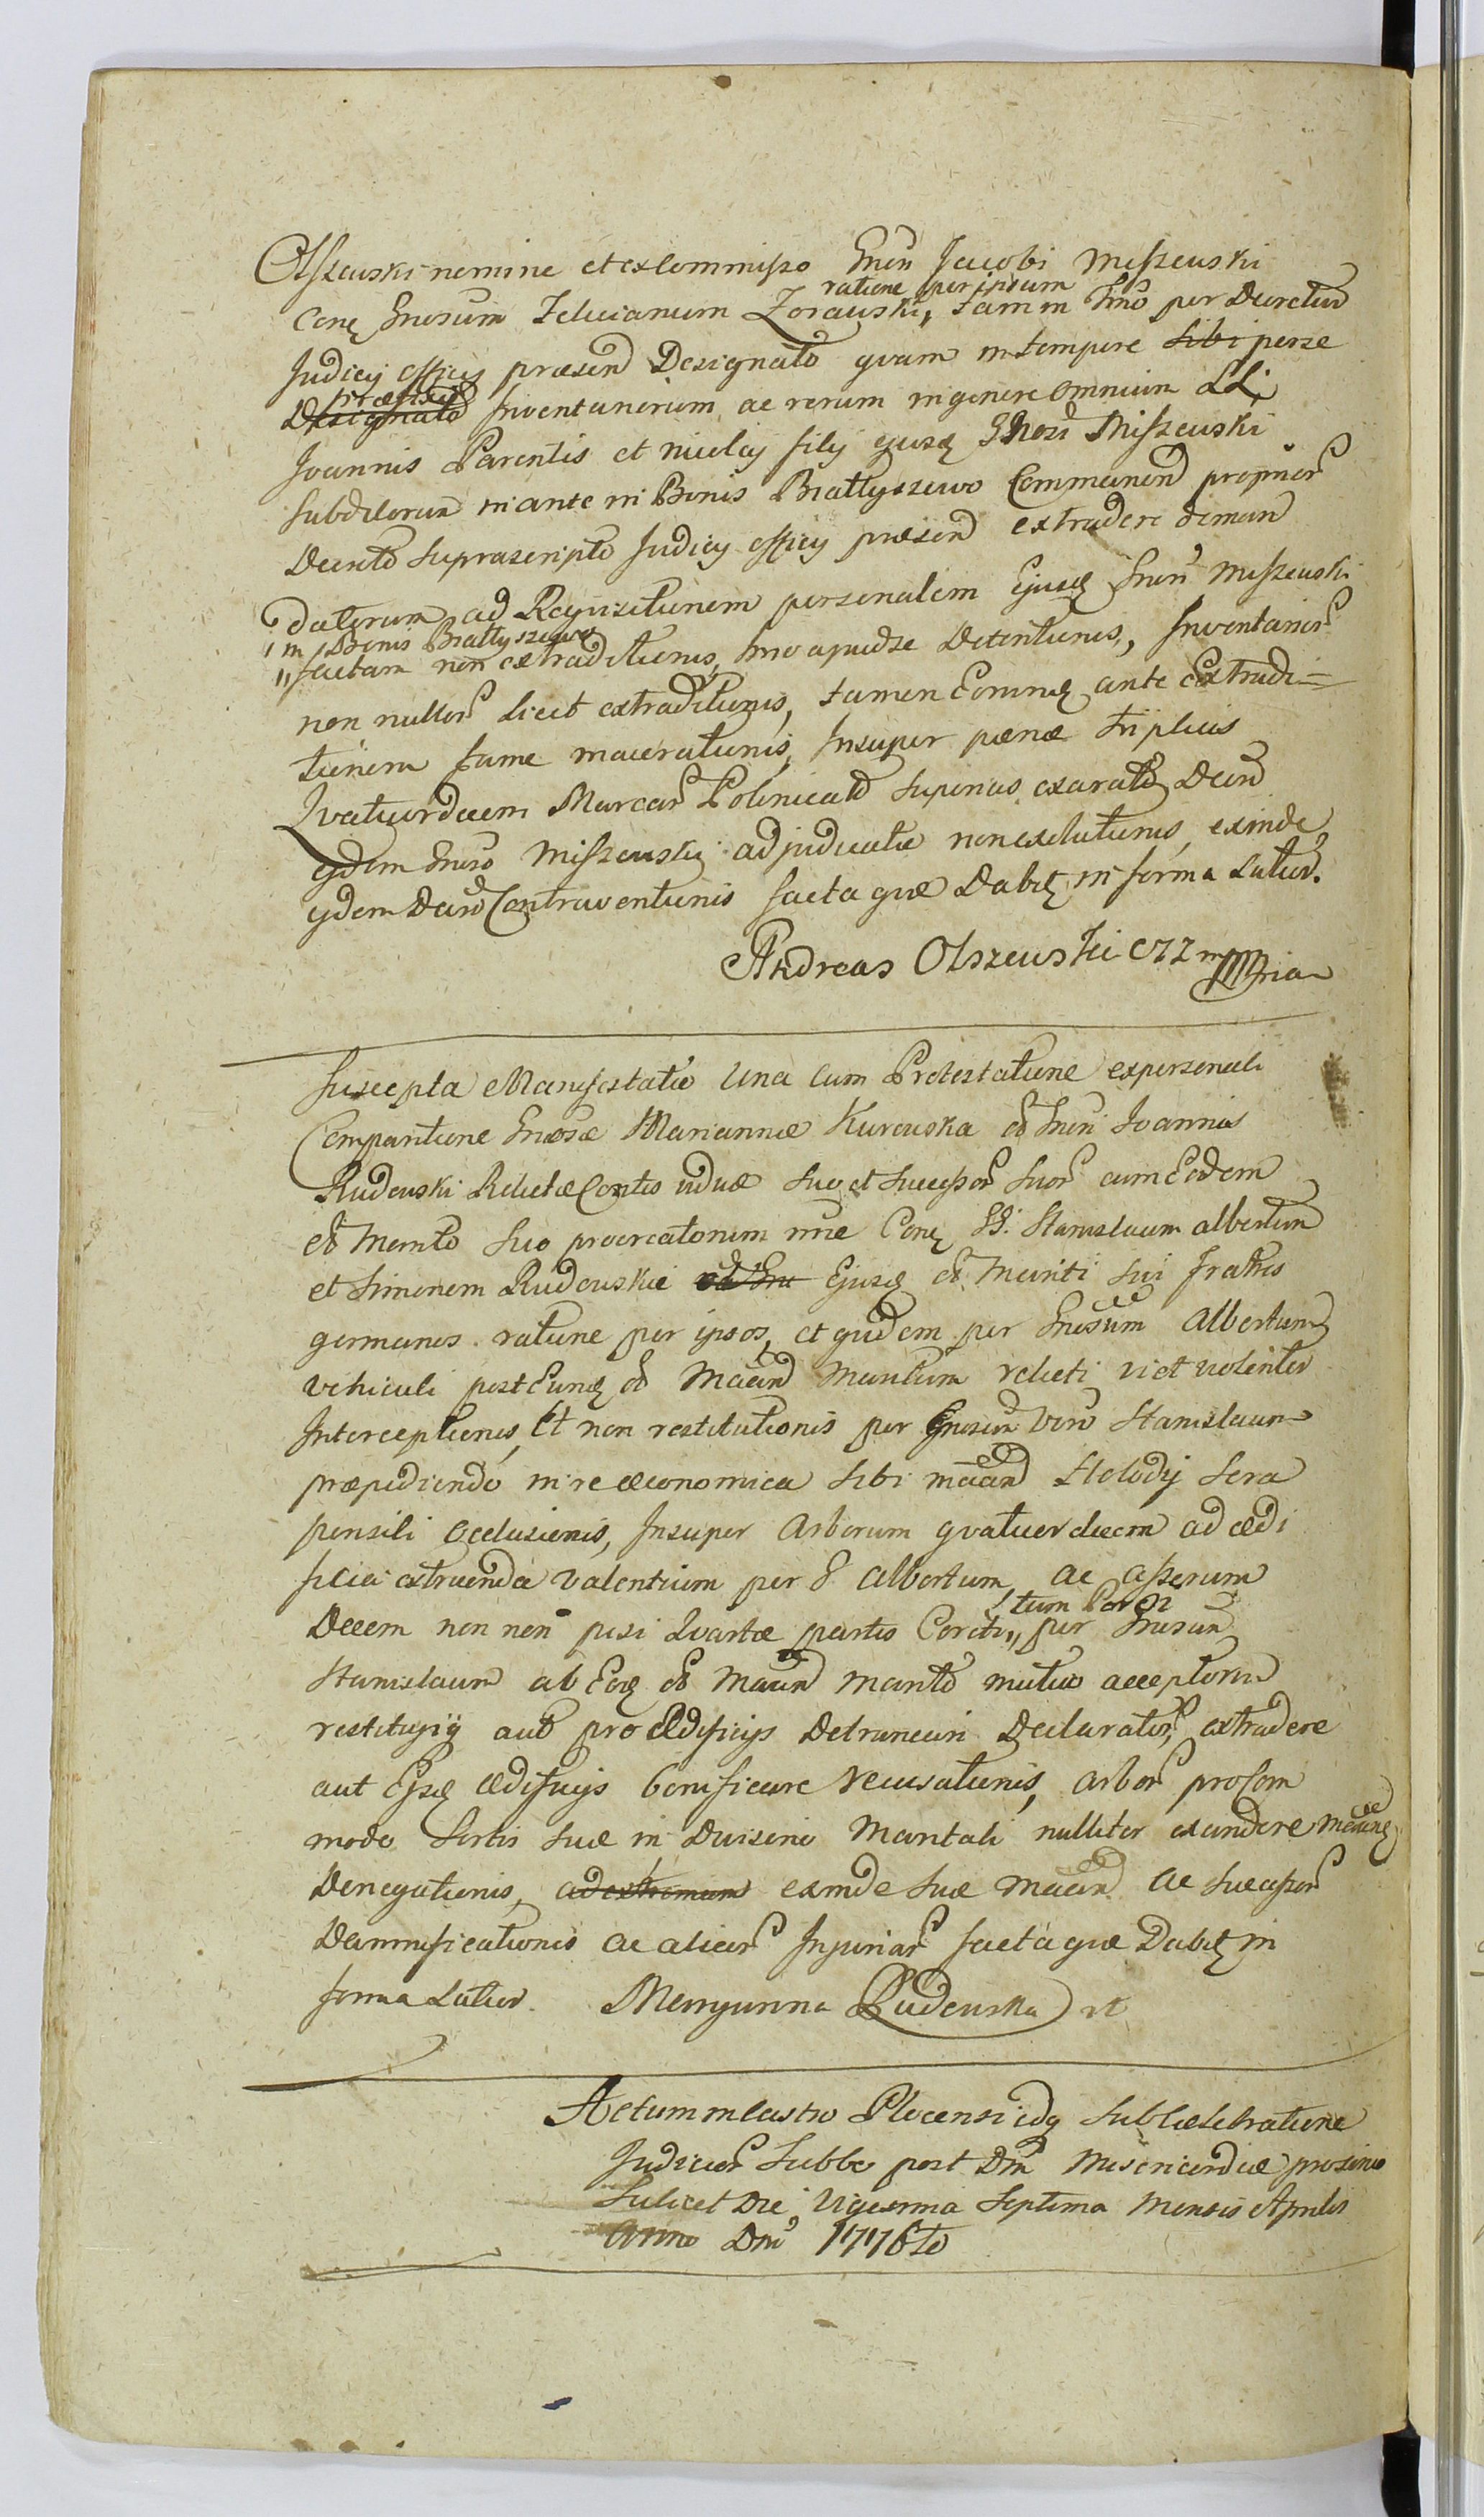 Olszewski nomine et ex Commisso Gnsi Jacobi Miszewski
ratione per ipsum
Conq Gnosum Felicianum Zorawski, tam in Tmo per Decretum
Judicij officij praesen Designato qvam in tempore sibi per se
praefixo
Designato Inventariorum ac rerum in genere omnium LL.
Joannis Parentis et Nicolaj filij ejusq Gnosi Miszewski
subditorum in ante in Bonis Brattyszewo Commanen proprior
Decreto suprascripto Judicij officij praesen extradere deman
datorum ad Reqvisitionem personalem Ejusq Gnosi Miszewski
in Bonis Brattyszewo
factam non extraditionis, imo apud se Detentionis, Inventarior
non nullor licet extraditionis, tamen Eorumq ante Extradi=
tionem fame macerationis, Insuper paenae triplicis
Qvatuordecim Marcar Polonicali superius exarato Decreto
eidem Gnoso Miszewski adjudicatae non exolutionis, exinde
ejdem Decreto Contraventionis facta qvae Dabit in forma Latior.
Andreas Olszewski CZZ mppria
Suscepta Manifestatio una cum Protestatione ex personali
Comparitione Gnosae Mariannae Kurowska od Gnosi Joannis
Rudowski Relictae Consortis viduae suo et successor suor cum Eodem
od Marito suo procreatorum nne Conq GG. Stanislaum Albertum
et Simonem Rudowskie od Gno Ejusq od Mariti sui fratres
germanos ratione per ipsos, et qvidem per Gnosum Albertum
vehiculi post Eumq od Maan Maritum relicti vi et violenter
Interceptionis, Et non restitutionis per Gnosum vero Stanislaum
praepediendo in re oeconomica sibi Maan Stolody sera
pensili occlusionis, Insuper Arborum qvatuordecim ad aedi
ficia extruenda valentium per G Albertum, ac asserum
tum Porci
Decem non non pisi Qvartae partis Coreti, per Gnosum
Stanislaum ab Eoq od Maan Marito mutuo acceptorum
restituyij aut pro aedificijs Detruncari Declarator, extradere
aut Ejsq aedificijs bonificare recusationis, arbor pro Com
modo sortis suae in Divisione Maritali nulliter excindere Maanq
Denegationis, ad extremum exinde suae Maan ac successor
Damnificationis ac aliar Injuriar facta qvae Dabit in
forma Latior. Maryanna Rudowska
Actum in Castro Plocensi idq sub Caelebratione
Judicior Sabbo post Dm Misericordiae proximo
Scilicet Die Vigesima Septima Mensis Aprilis
Anno Dni 1776to